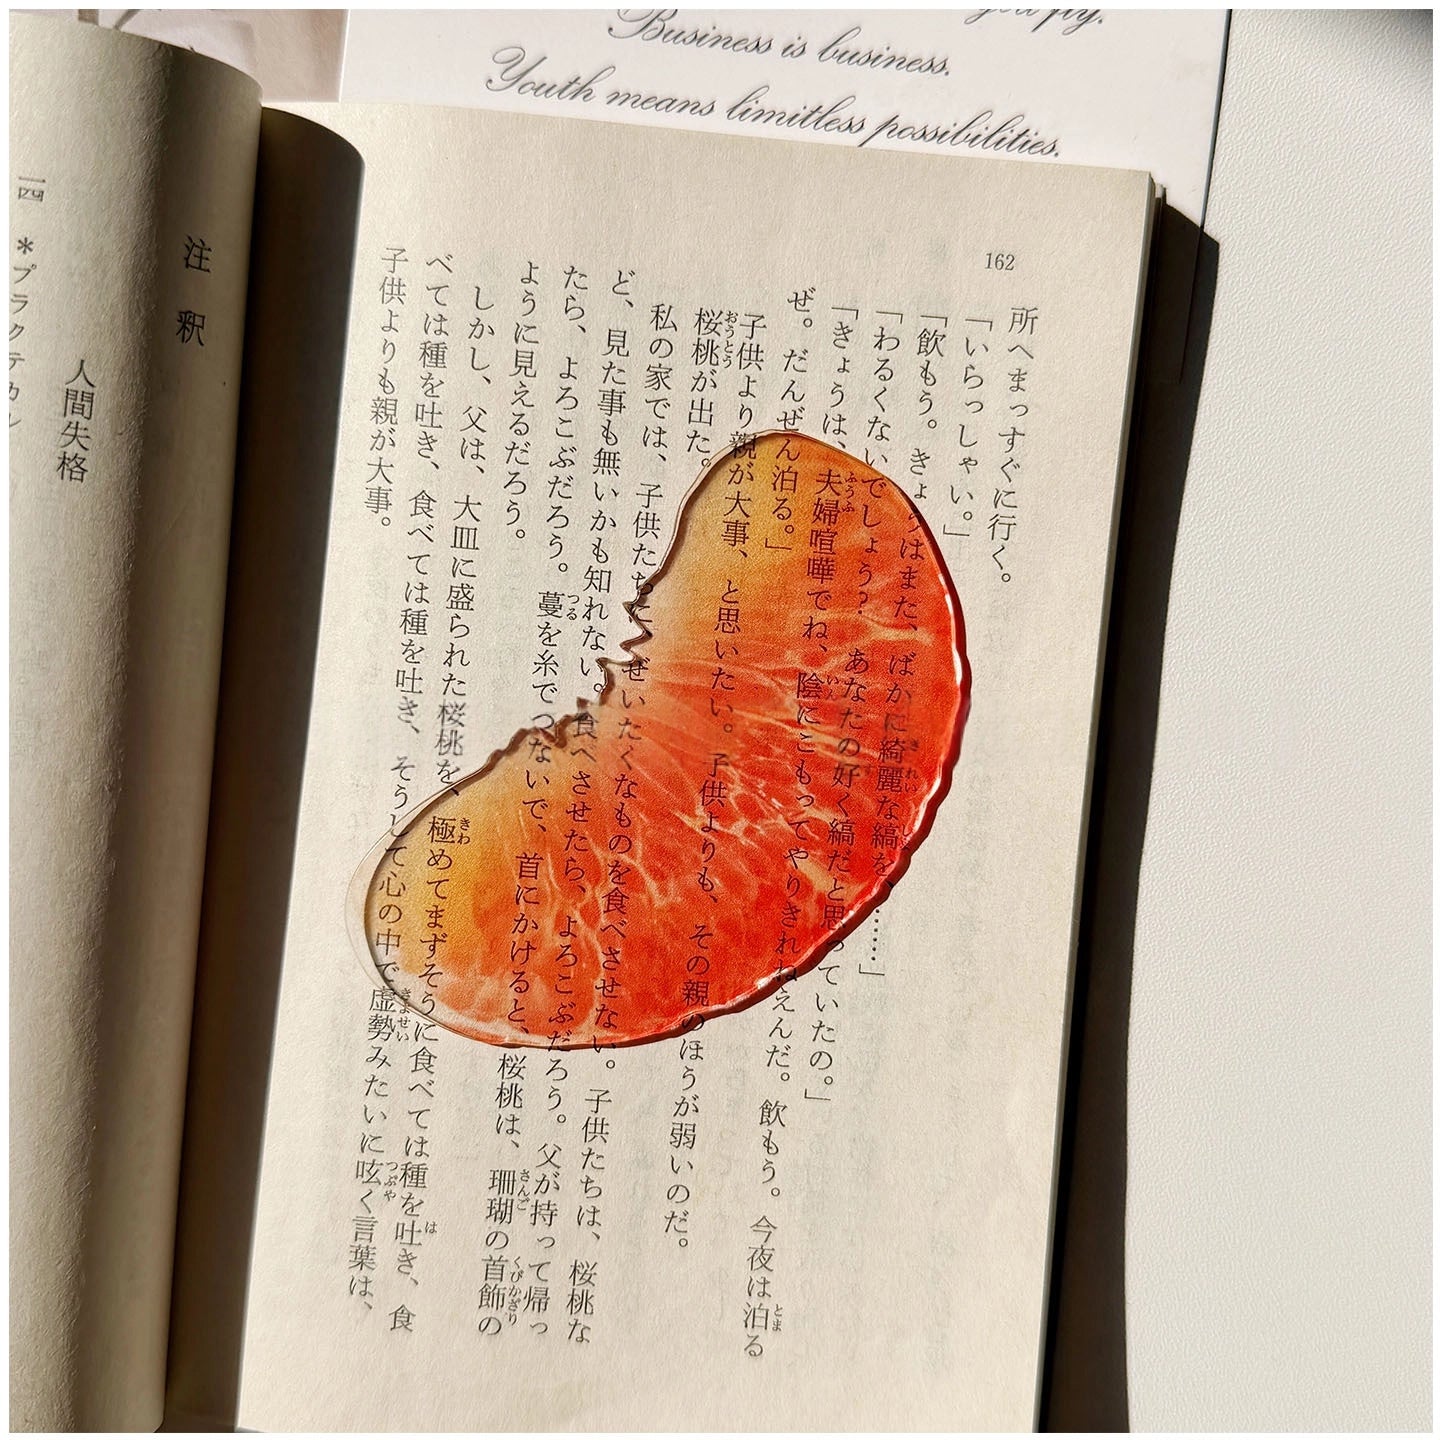 you fly.
Business is business.
Youth means limitless possibilities.
162
所へまっすぐに行く。
「いらっしゃい。」
「飲もう。きょうはまた、ばかに綺麗な縞を、……」
「わるくないでしょう？ あなたの好く縞だと思っていたの。」
「きょうは、夫婦喧嘩でね、陰にこもってやりきれねえんだ。飲もう。今夜は泊る
ぜ。だんぜん泊る。」
子供より親が大事、と思いたい。子供よりも、その親のほうが弱いのだ。
桜桃が出た。
私の家では、子供たちに、ぜいたくなものを食べさせない。子供たちは、桜桃な
ど、見た事も無いかも知れない。食べさせたら、よろこぶだろう。父が持って帰っ
たら、よろこぶだろう。蔓を糸でつないで、首にかけると、桜桃は、珊瑚の首飾の
ように見えるだろう。
しかし、父は、大皿に盛られた桜桃を、極めてまずそうに食べては種を吐き、食
べては種を吐き、食べては種を吐き、そうして心の中で虚勢みたいに呟く言葉は、
子供よりも親が大事。
注釈
人間失格
一四 ＊プラクテカル